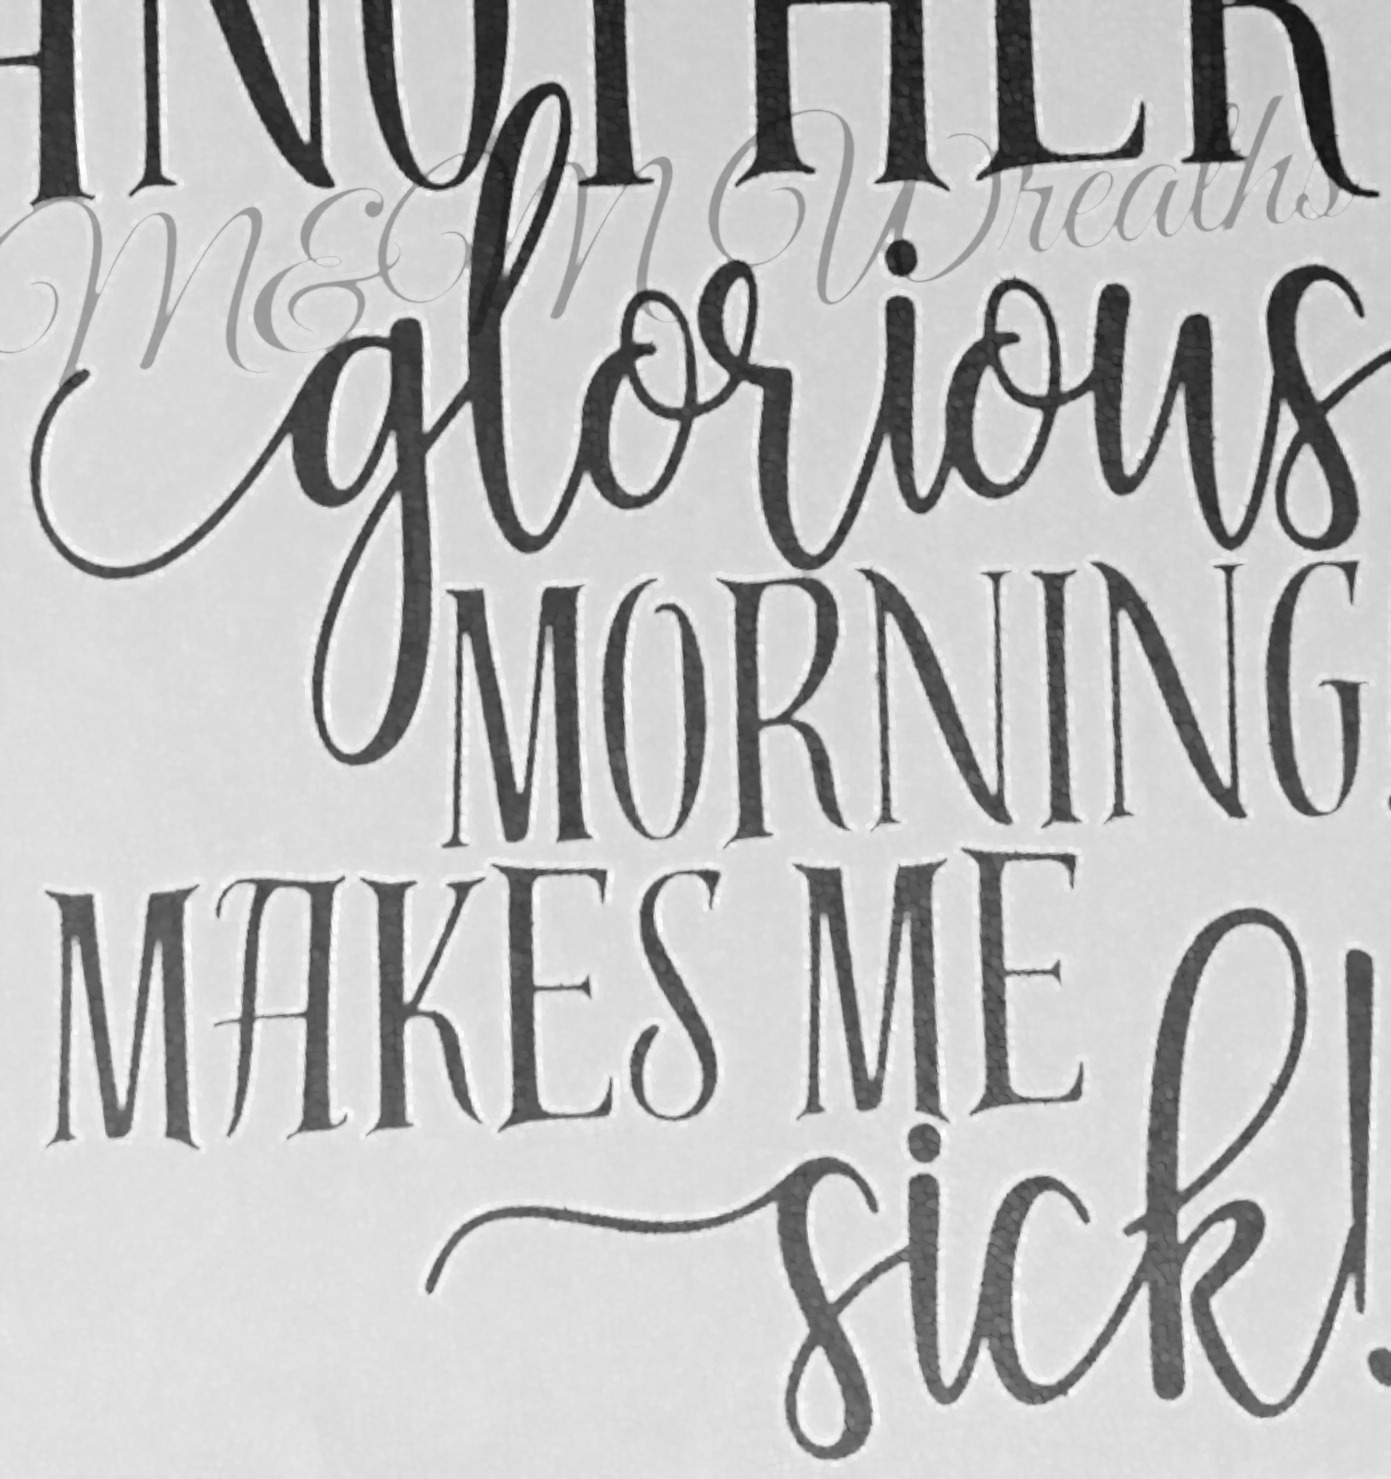 ANOTHER
M&M Wreaths
glorious
MORNING.
MAKES ME
sick!